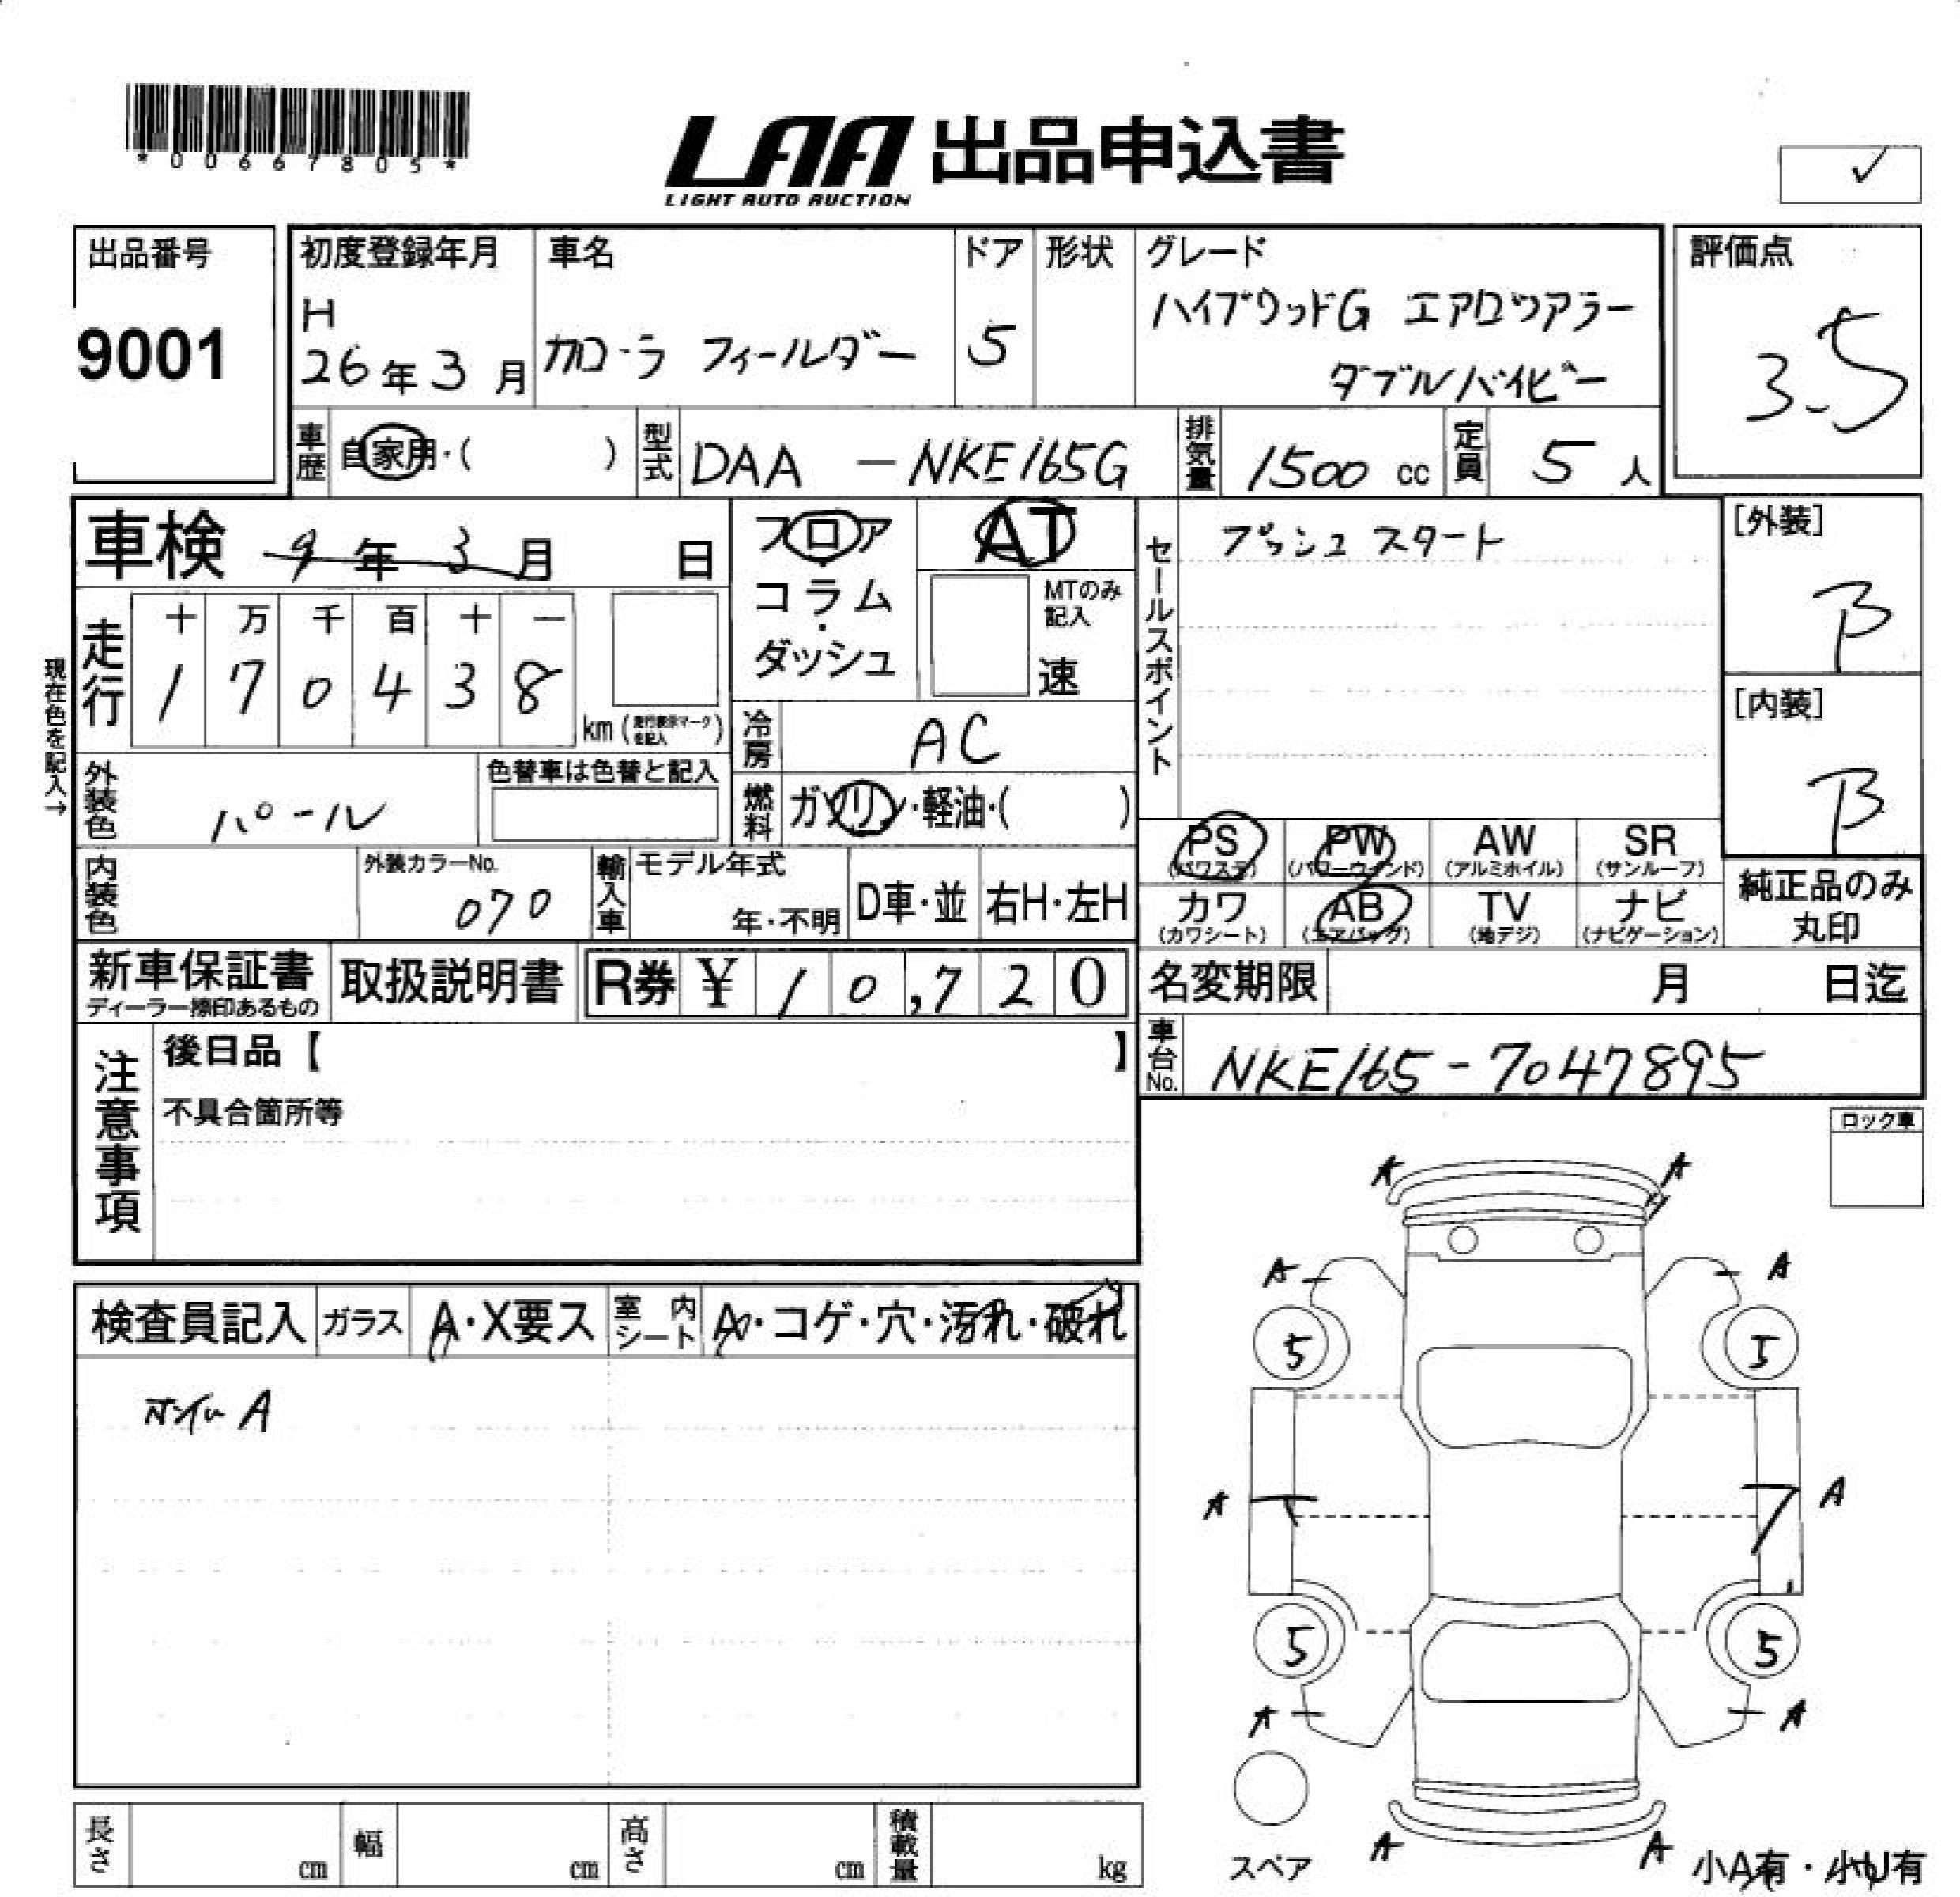 *00667805*
LAA 出品申込書
LIGHT AUTO AUCTION
✓
出品番号
9001
初度登録年月
H
26年3月
車名
カローラ フィールダー
ドア
5
形状
グレード
ハイブリッドG エアロツアラー
ダブルバイビー
評価点
3.5
車歴
自家用・( )
型式
DAA -NKE165G
排気量
1500 cc
定員
5 人
車検 9年3月 日
フロア
コラム
・
ダッシュ
AT
MTのみ
記入
速
セールスポイント
プッシュスタート
[外装]
B
[内装]
B
現在色を記入→
走行
十 万 千 百 十 一
1 7 0 4 3 8
km (走行表示マークを記入)
冷房
AC
外装色
パール
色替車は色替と記入
燃料
ガソリン・軽油・( )
PS
(パワステ)
PW
(パワーウインド)
AW
(アルミホイル)
SR
(サンルーフ)
カワ
(カワシート)
AB
(エアバッグ)
TV
(地デジ)
ナビ
(ナビゲーション)
純正品のみ
丸印
内装色
外装カラーNo.
070
輸入車
モデル年式
年・不明
D車・並
右H・左H
新車保証書
ディーラー捺印あるもの
取扱説明書
R券 ¥ 10,720
名変期限 月 日迄
車台No.
NKE165-7047895
注意事項
後日品【 】
不具合箇所等
ロック車
検査員記入
ガラス
A・X要ス
室内シート
A・コゲ・穴・汚れ・破れ
ホイルA
A A
A A
5 5
A A
5 5
A A
スペア
A A
小A有・小U有
長さ cm
幅 cm
高さ cm
積載量 kg